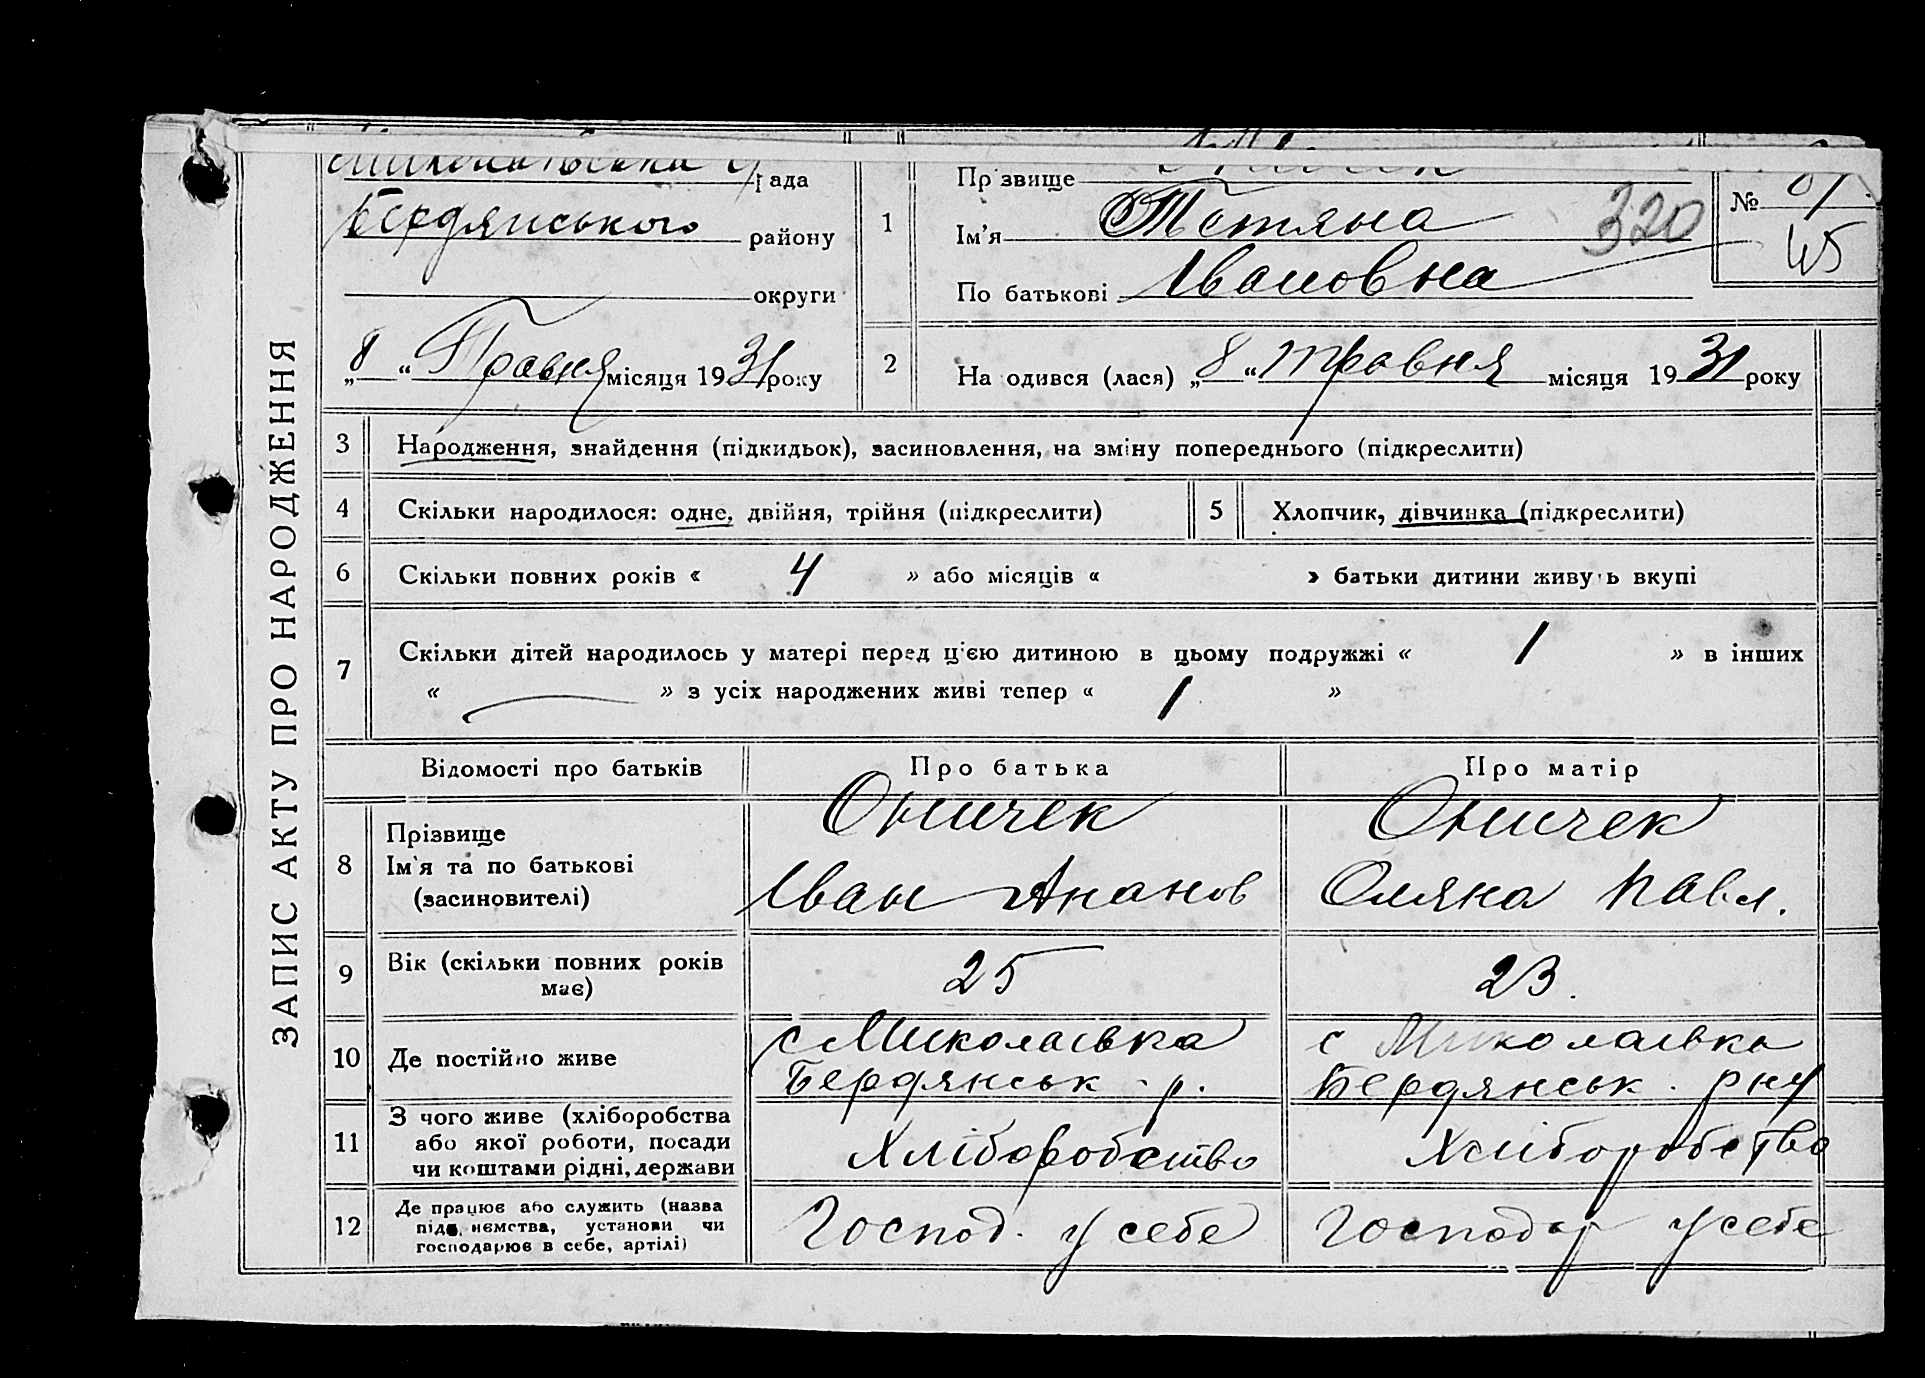 ЗАПИС АКТУ ПРО НАРОДЖЕННЯ
рада
Бердянського району
округи
„8“ Травня місяця 1931 року
1
Прізвище
Ім'я Тетяна
По батькові Івановна
320
№ 81
45
2
На одився (лася) „8“ травня місяця 1931 року
3 Народження, знайдення (підкидьок), засиновлення, на зміну попереднього (підкреслити)
4 Скільки народилося: одне, двійня, трійня (підкреслити)
5 Хлопчик, дівчинка (підкреслити)
6 Скільки повних років « 4 » або місяців « » батьки дитини живуть вкупі
7 Скільки дітей народилось у матері перед ц'єю дитиною в цьому подружжі « 1 » в інших
« — » з усіх народжених живі тепер « 1 »
Відомості про батьків Про батька Про матір
8 Прізвище
Ім'я та по батькові
(засиновителі)
Оничек
Іван Ананов
Оничек
Оляна Павл.
9 Вік (скільки повних років
має)
25
23.
10 Де постійно живе
с Миколаївка
Бердянськ - р.
с Миколаївка
Бердянськ . рну
11 З чого живе (хліборобства
або якої роботи, посади
чи коштами рідні, держави
Хліборобство
Хліборобство
12 Де працює або служить (назва
підприємства, установи чи
господарює в себе, артілі)
Господ. у себе
Господар у себе